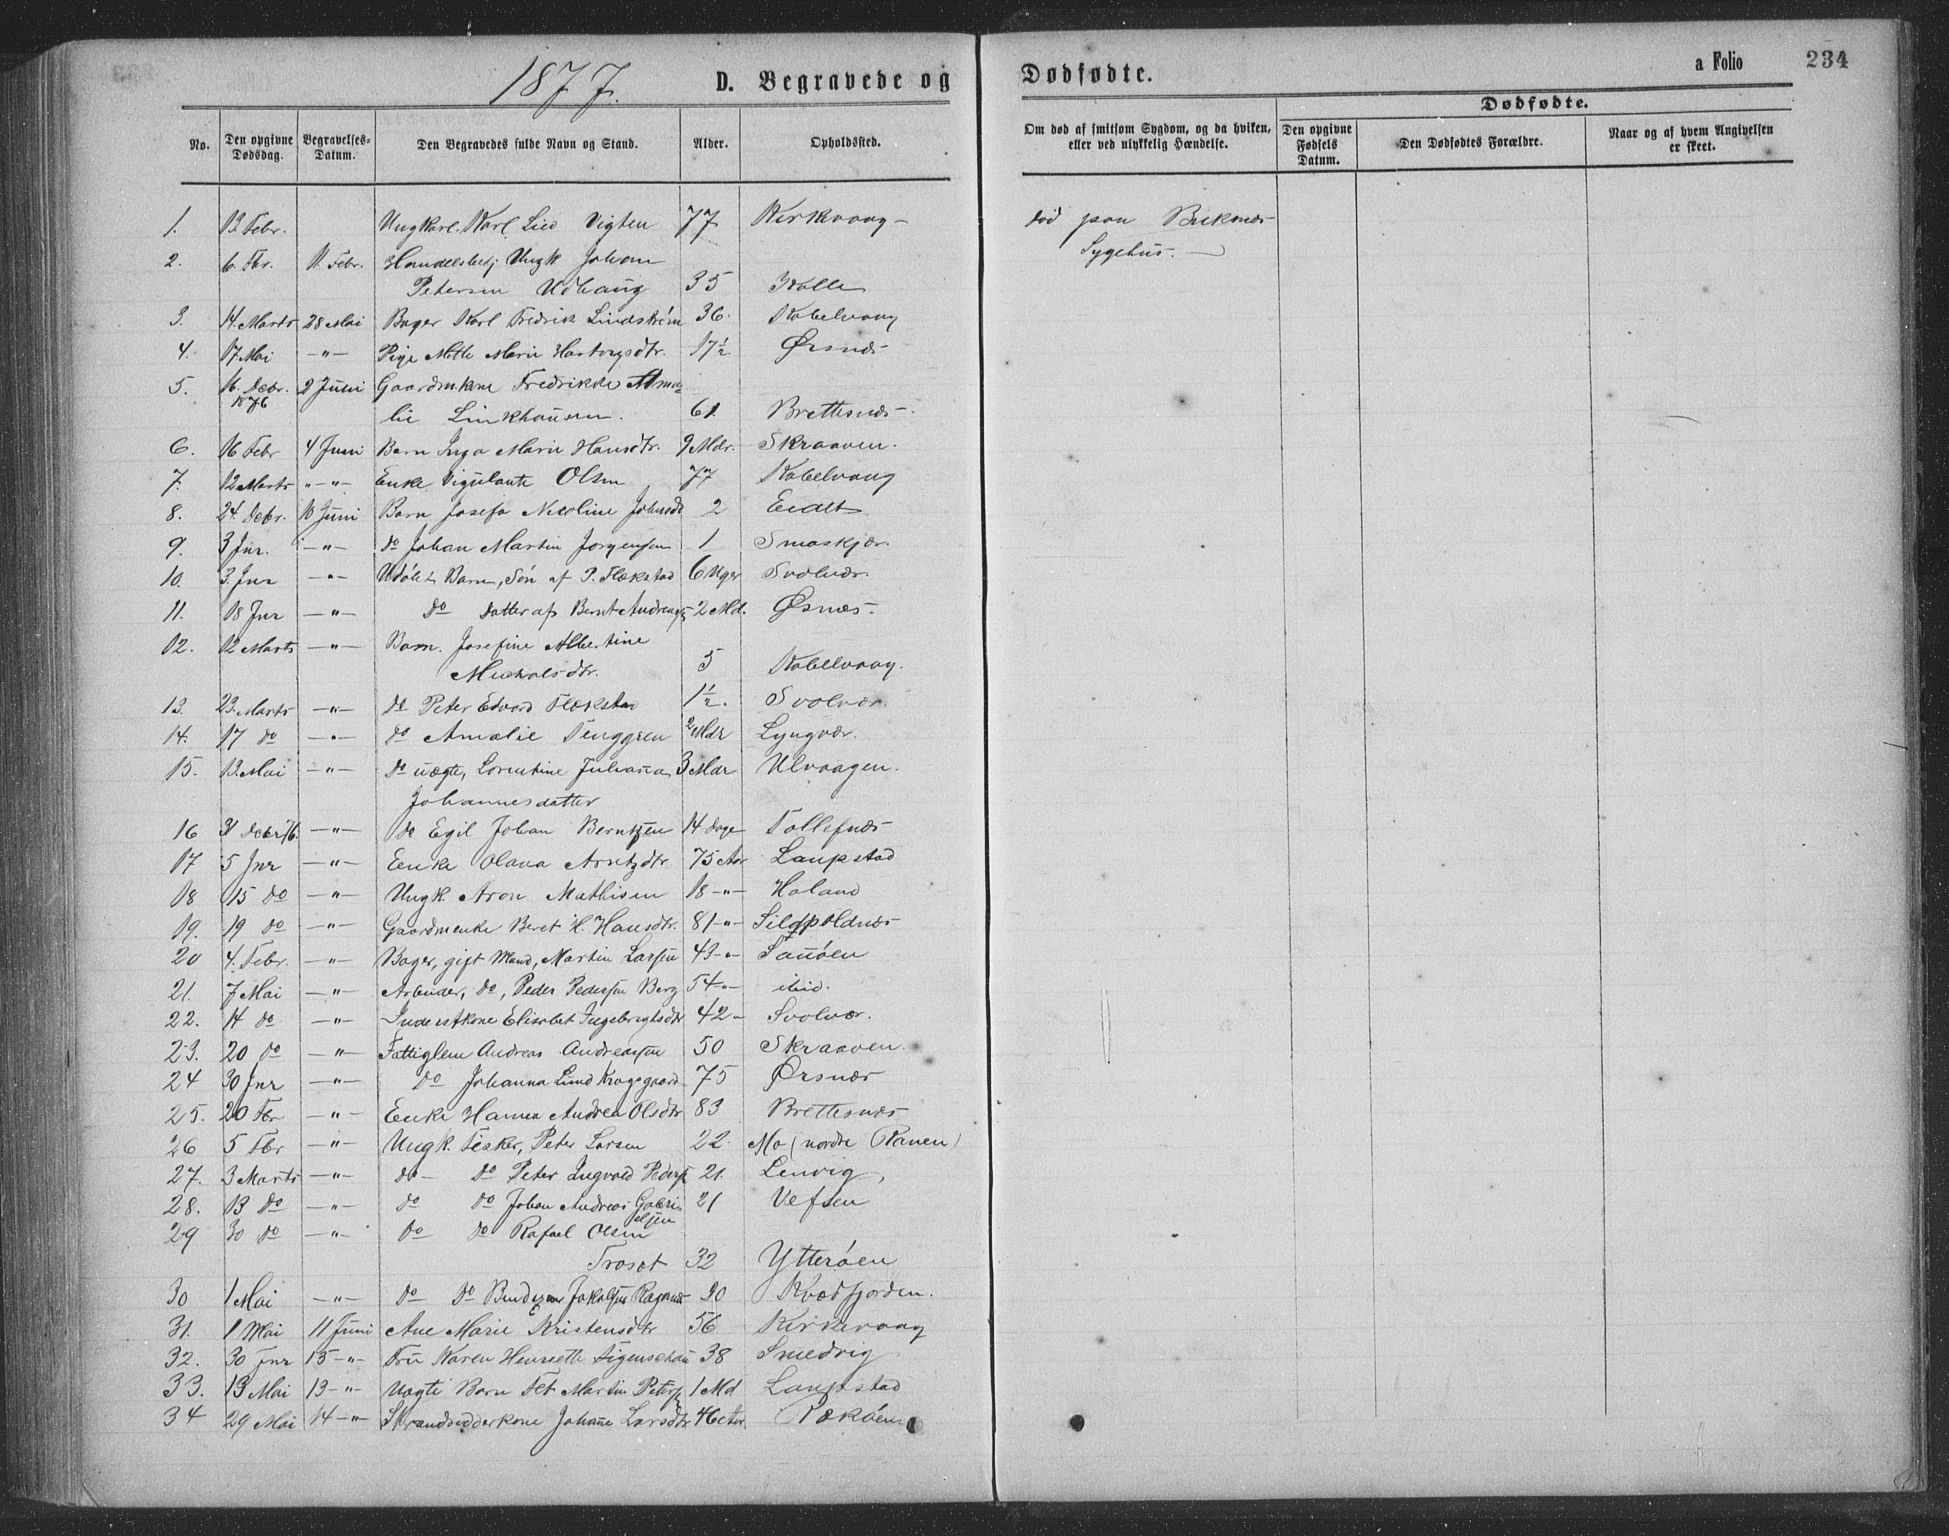 1877.
D. Begravede og Dødfødte.
a Folio 234
No. Den opgivne Dødsdag. Begravelses-Datum. Den Begravedes fulde Navn og Stand. Alder. Opholdssted. Om død af smitsom Sygdom, og da hviken, eller ved ulykkelig Hændelse. Dødfødte.
Den opgivne Fødsels Datum. Den Dødfødtes Forældre. Naar og af hvem Angivelsen er skeet.
1. 13 Febr. Ungkarl. Karl Lied Vigten 77 Kirkvaag død paa Buknæs
2. 6. Fbr. 11. Febr. Handelsbetj Ungk Johan Sygehus.
Petersen Udhaug 35 Kalle
3. 14. Marts 28 Mai Bager Karl Fredrik Lindstrøm 36. Kabelvaag
4. 17 Mai -"- Pige Mette Marie Hartvigsdtr. 17½ Ørsnæs
5. 16. Debr. 2 Juni Gaardmkone Fredrikke Ama-
1876 lie Linkhausen. 61. Brettesnæs.
6. 16 Febr 4 Juni Barn Inga Marie Hansdtr. 9 Mdr. Skraaven.
7. 12 Marts -"- Enke Vigulante Olsen 77 Kabelvaag
8. 24. Debr. 10 Juni Barn Josefa Nicoline Johnsdt 2 Eidet
9. 3 Jnr. -"- do Johan Martin Jørgensen 1 Smaskjær.
10. 3. Jnr -"- Udøbt Barn, Søn af P. Flækstad 6 Uger Svolvær.
11. 18 Jnr -"- do Datter af Bernt Andreas 2 Md. Øsnæs.
12. 12 Marts -"- Barn. Josefine Albertine
Mickalsdtr. 5 Kabelvaag.
13. 23. Marts -"- do Peter Edvard Flækstad 1½. Svolvær.
14. 17 do -"- do Amalie Tenggren 2 Mdr Lyngvær.
15. 13. Mai -"- do uægte, Lorentine Juliana 3 Mdr Ulvaagen.
Johannesdatter
16 31 Debr 76. -"- do Egil Johan Berntzen 14 Dage Tollefnæs
17 5 Jnr -"- Enke Olava Arntzdtr. 75 Aar Laupstad
18 15 do -"- Ungk Aron Mathisen 18 -"- Holand
19. 19 do -"- Gaardmenke Beret H. Hansdtr. 81 -"- Sildpoldnæs
20 4. Febr. -"- Bager, gift Mand, Martin Larsen 43 -"- Sauøen
21. 7 Mai -"- Arbeider, do, Peder Pedersen Berg 54 -"- ibid.
22. 14 do -"- Inderstkone Elisabet Ingebrigtsdtr 42 " Svolvær.
23. 20 do -"- Fattiglem Andreas Andreassen 50 Skraaven.
24 30 Jnr -"- do Johanna Lund Krogsgaard 75 Ørsnæs
25. 20 Fbr -"- Enke Hanna Andrea Olsdtr 83 Brettesnæs
26 5 Fbr -"- Ungk. Fisker, Peter Larsen 22. Mo (nordre Ranen)
27. 3 Marts -"- do - do Peter Ingvald Peders 21. Lenvig,
28. 13 do -"- do do Johan Andreas Gabri- 21 Vefsen
elsen
29 30 do -"- do do Rafael Olsen
Troset 32 Ytterøen
30 1 Mai -"- do do Jakobsen 20 Kvædfjorden.
31. 1 Mai 11 Juni Ane Marie Kristensdtr 56 Kirkevaag
32. 30 Jnr 13 -"- Fru Karen Henriette 38 Smedvig
33. 13 Mai 13 -"- Uægte Barn Martin Peters 1 Md Laupstad
34 29 Mai 14 -"- Strandsidderkone Johane Larsdtr. 46 Aar Rækøen.